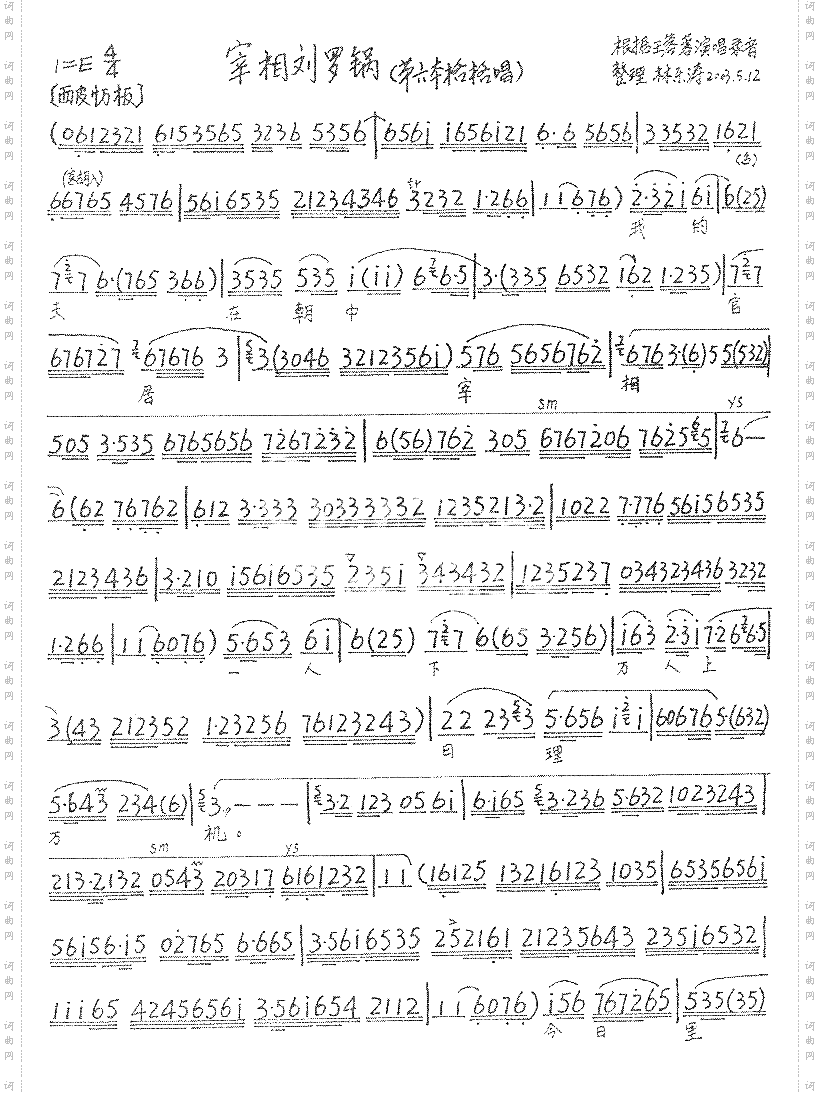 宰相刘罗锅(第六本格格唱)
1=E 4/4
[西皮慢板]
整理 林东涛2003.5.12
(0612321 6153565 3236 5356 656i i656i21 6·6 5656|33532 1621
66765 4576|56i6535 21234346 3232 1·266|1i6076) 2·32i 6i|6(25)
我 的
767 6·(765 366)|3535 535 i(ii) 676·5|3·(335 6532 i62 1·235)|727
夫 在 朝 中 官
676727 67676 3|3(3046 3212356i) 576 5656762|6763·(6)55(532)|
居 宰 相
sm ys
505 3·535 6765656 7267232|6(56)762 305 6767206 762565|6—
6(62 76762|612 3·333 30333332 1235213·2|1022 7·776 56i56535
2123436|3·210 i56i6535 235i 343432|1235237 034323436 3232
1·266|1i6076) 5·653 6i|6(25) 727 6(65 3·256)|i63 2·3i7·2665|
一 人 下 万 人 上
3(43 212352 1·23256 76123243)|22 2353 5·656 i2i|606765·(632)
日 理
5·643 234(6)|3 — — —|3·2 123 056i|6·i65 3·236 5·632 1023243|
万 机。
sm ys
213·2132 0543 20317 6161232|11 (16125 13216123 1035|6535656i
56i56·i5 02765 6·665|3·56i6535 252161 21235643 235i6532|
iii65 4245656i 3·56i654 2112|1i6076) i56 767265|535(35)
今 日 里
词曲网